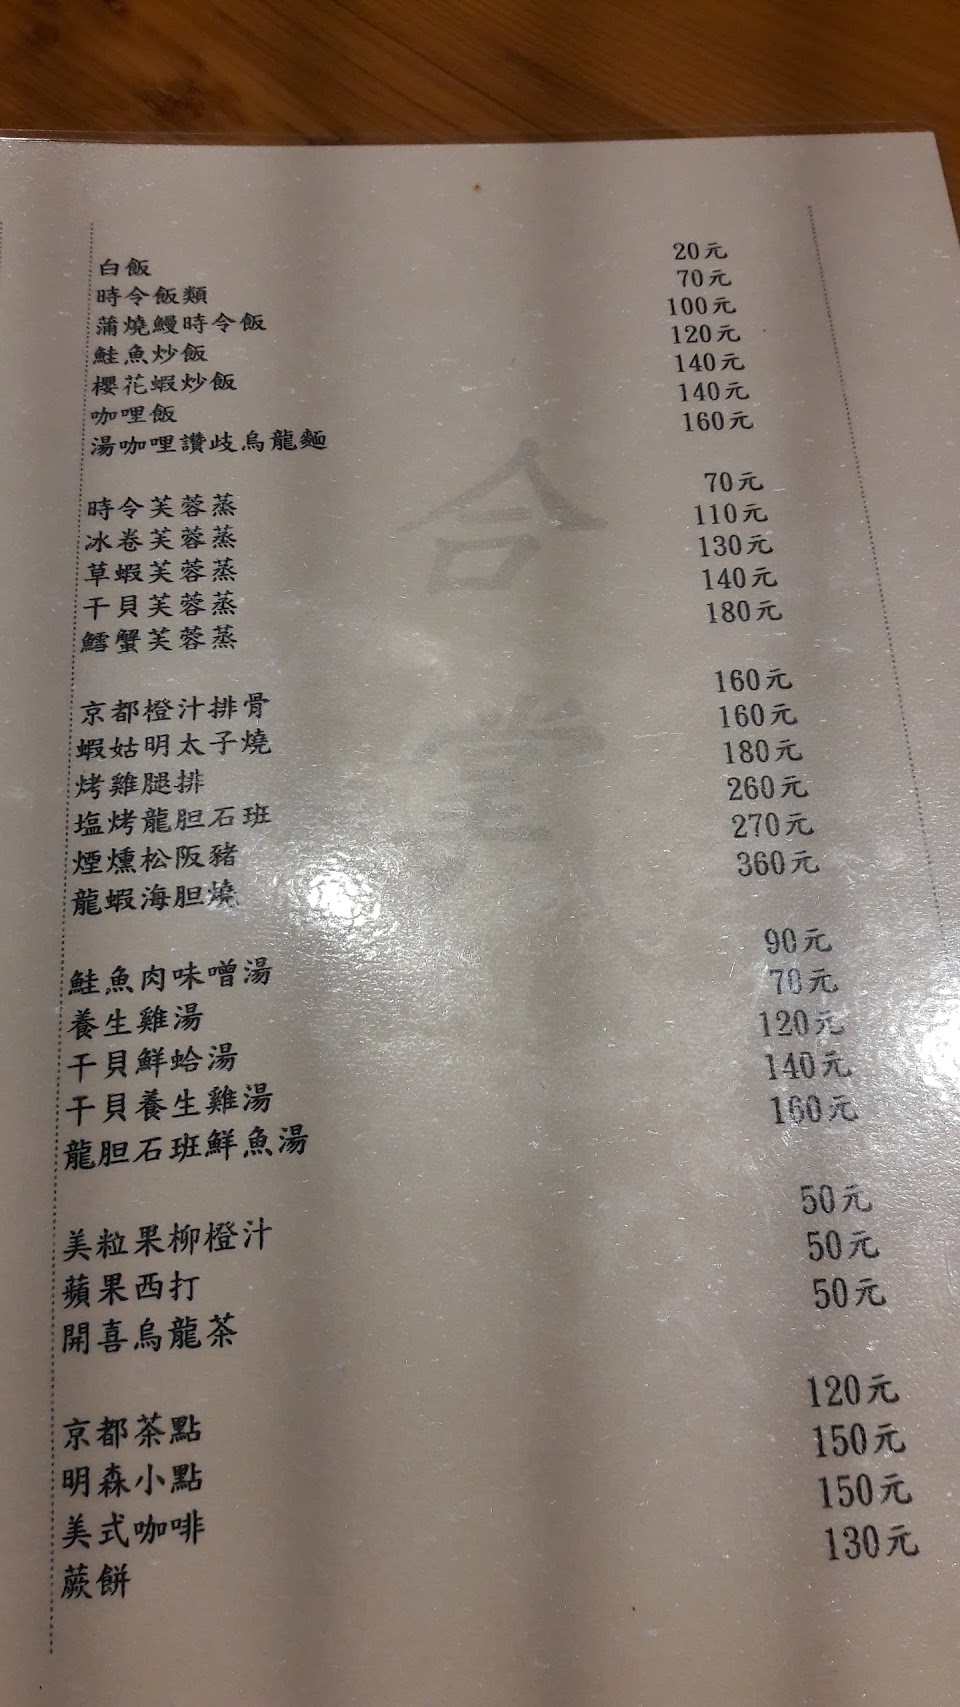 白飯 20元
時令飯類 70元
蒲燒鰻時令飯 100元
鮭魚炒飯 120元
櫻花蝦炒飯 140元
咖哩飯 140元
湯咖哩讚歧烏龍麵 160元
時令芙蓉蒸 70元
冰卷芙蓉蒸 110元
草蝦芙蓉蒸 130元
干貝芙蓉蒸 140元
鱈蟹芙蓉蒸 180元
京都橙汁排骨 160元
蝦姑明太子燒 160元
烤雞腿排 180元
塩烤龍胆石班 260元
煙燻松阪豬 270元
龍蝦海胆燒 360元
鮭魚肉味噌湯 90元
養生雞湯 70元
干貝鮮蛤湯 120元
干貝養生雞湯 140元
龍胆石班鮮魚湯 160元
美粒果柳橙汁 50元
蘋果西打 50元
開喜烏龍茶 50元
京都茶點 120元
明森小點 150元
美式咖啡 150元
蕨餅 130元
合